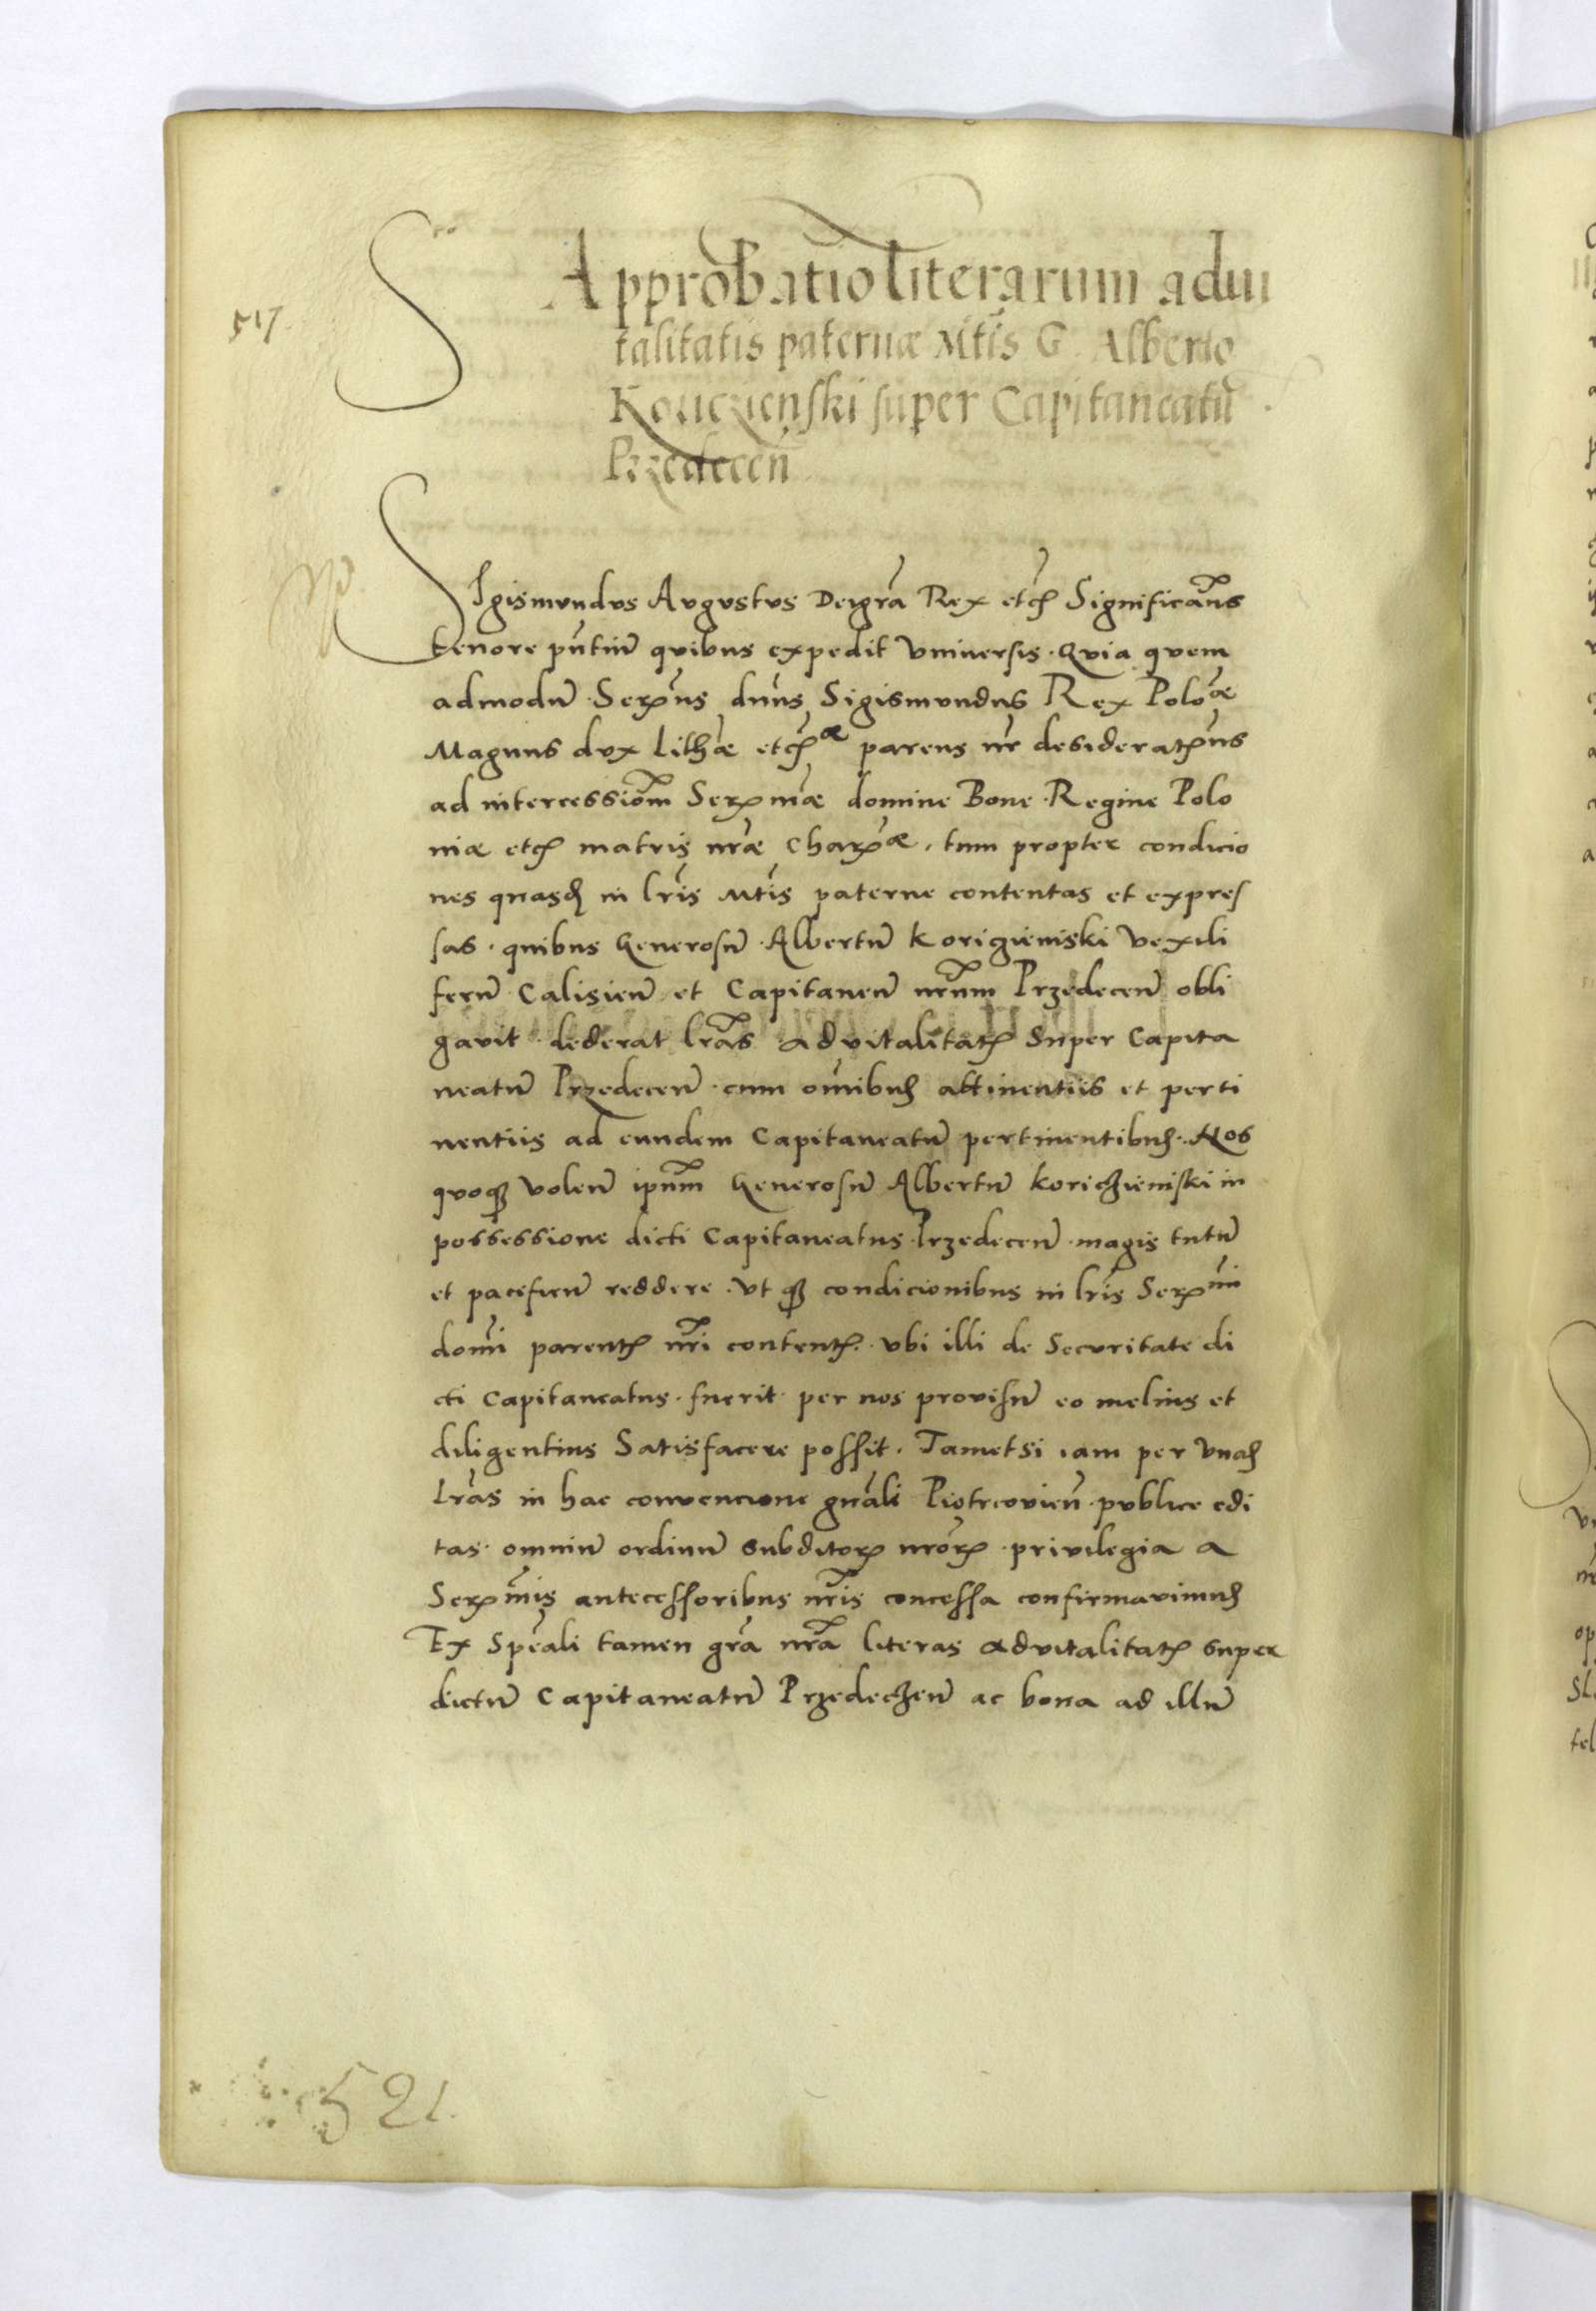 517
Approbatio literarum advi
talitatis paternæ Mtis G. Alberto
super Capitaneatū
Przedecen̄
SIgismundus Augustus Dei grā Rex etc̄ Significam̄s
tenore pn̄tiū quibus expedit universis. Quia quem
admodū Serꝭm̄us dn̄us Sigismundus Rex Poloæ
Magnus dux Lith̄æ etc̄ parens nr̄ desideratꝭm̄us
ad intercessiom̄ Serꝭmæ domine Bone Regine Polo
niæ etc̄ matris nr̄æ Charꝭæ, tum propter condicio
nes quasdꝫ in lr̄is Mtis paterne contentas et expres
sas. quibus Generosū Albertū Vexili
ferū Calisien̄ et Capitaneū nrūm Przedecen̄ obli
gavit dederat lrās advitalitatꝭ Super Capita
neatū Przedecen̄ cum om̄ibuꝫ attinentiis et perti
nentiis ad eundem Capitaneatū pertinentibuꝫ. Nos
quoqꝫ volen̄ ipsum̄ Generosū Albertū Koriczienski in
possessione dicti Capitaneatus Przedecen̄ magis tutū
et pacificū reddere. Ut qꝫ condicionibus in lr̄is Serꝭmi
domī parentꝭ nrī contentꝭ. ubi illi de Securitate di
cti Capitaneatus fuerit per nos provisū eo melius et
diligentius Satisfacere possit. Tametsi iam per unaꝫ
Lrās in hac convencione gn̄ali Piotrcovien̄ publice edi
tas omniū ordinū subditorꝝ nrōrꝝ privilegia a
Serꝭmis antecessoribus nrīs concessa confirmavimuꝫ
Ex Spēali tamen grā nrā literas advitalitatꝭ super
dictū Capitaneatū Przedeczen̄ ac bona ad illū
521.